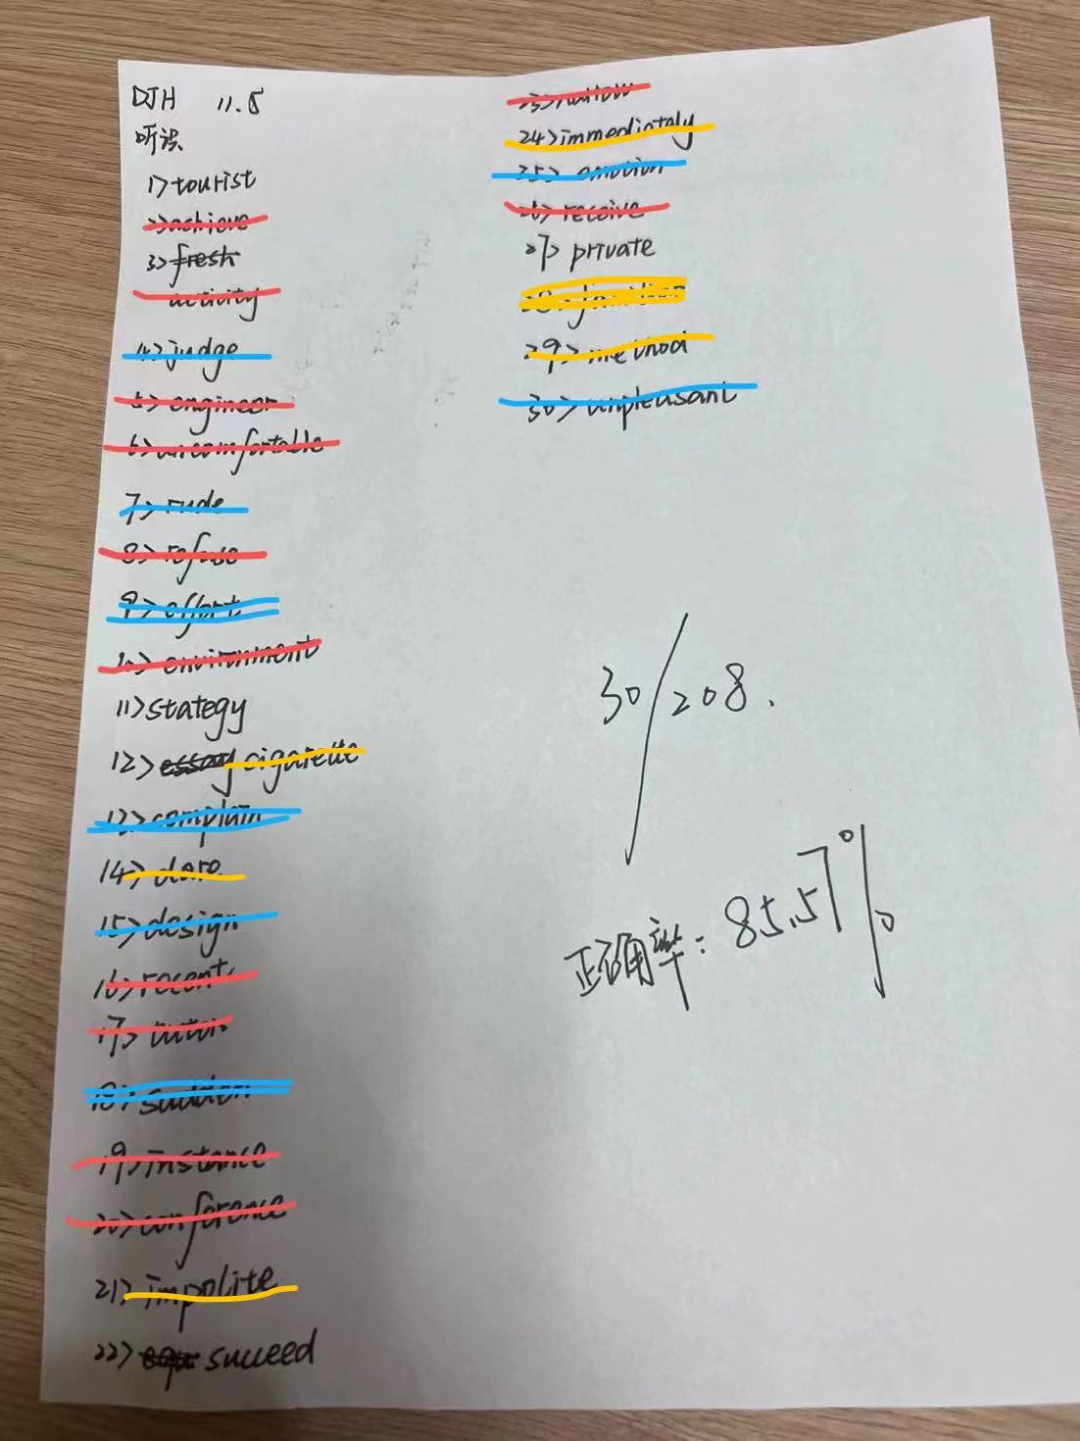 DJH 11.5
听误
1>tourist
2>achieve
3>fresh
activity
4>judge
5>engineer
6>uncomfortable
7>rude
8>refuse
9>effort
10>environment
11>stategy
12>essay cigarette
13>complain
14>dare
15>design
16>recent
17>tutor
18>sudden
19>instance
20>conference
21>impolite
22> succeed
23>
24>immediately
25>emotion
26>receive
27>private
28>familiar
29>method
30>unpleasant
30/208.
正确率:85.57%